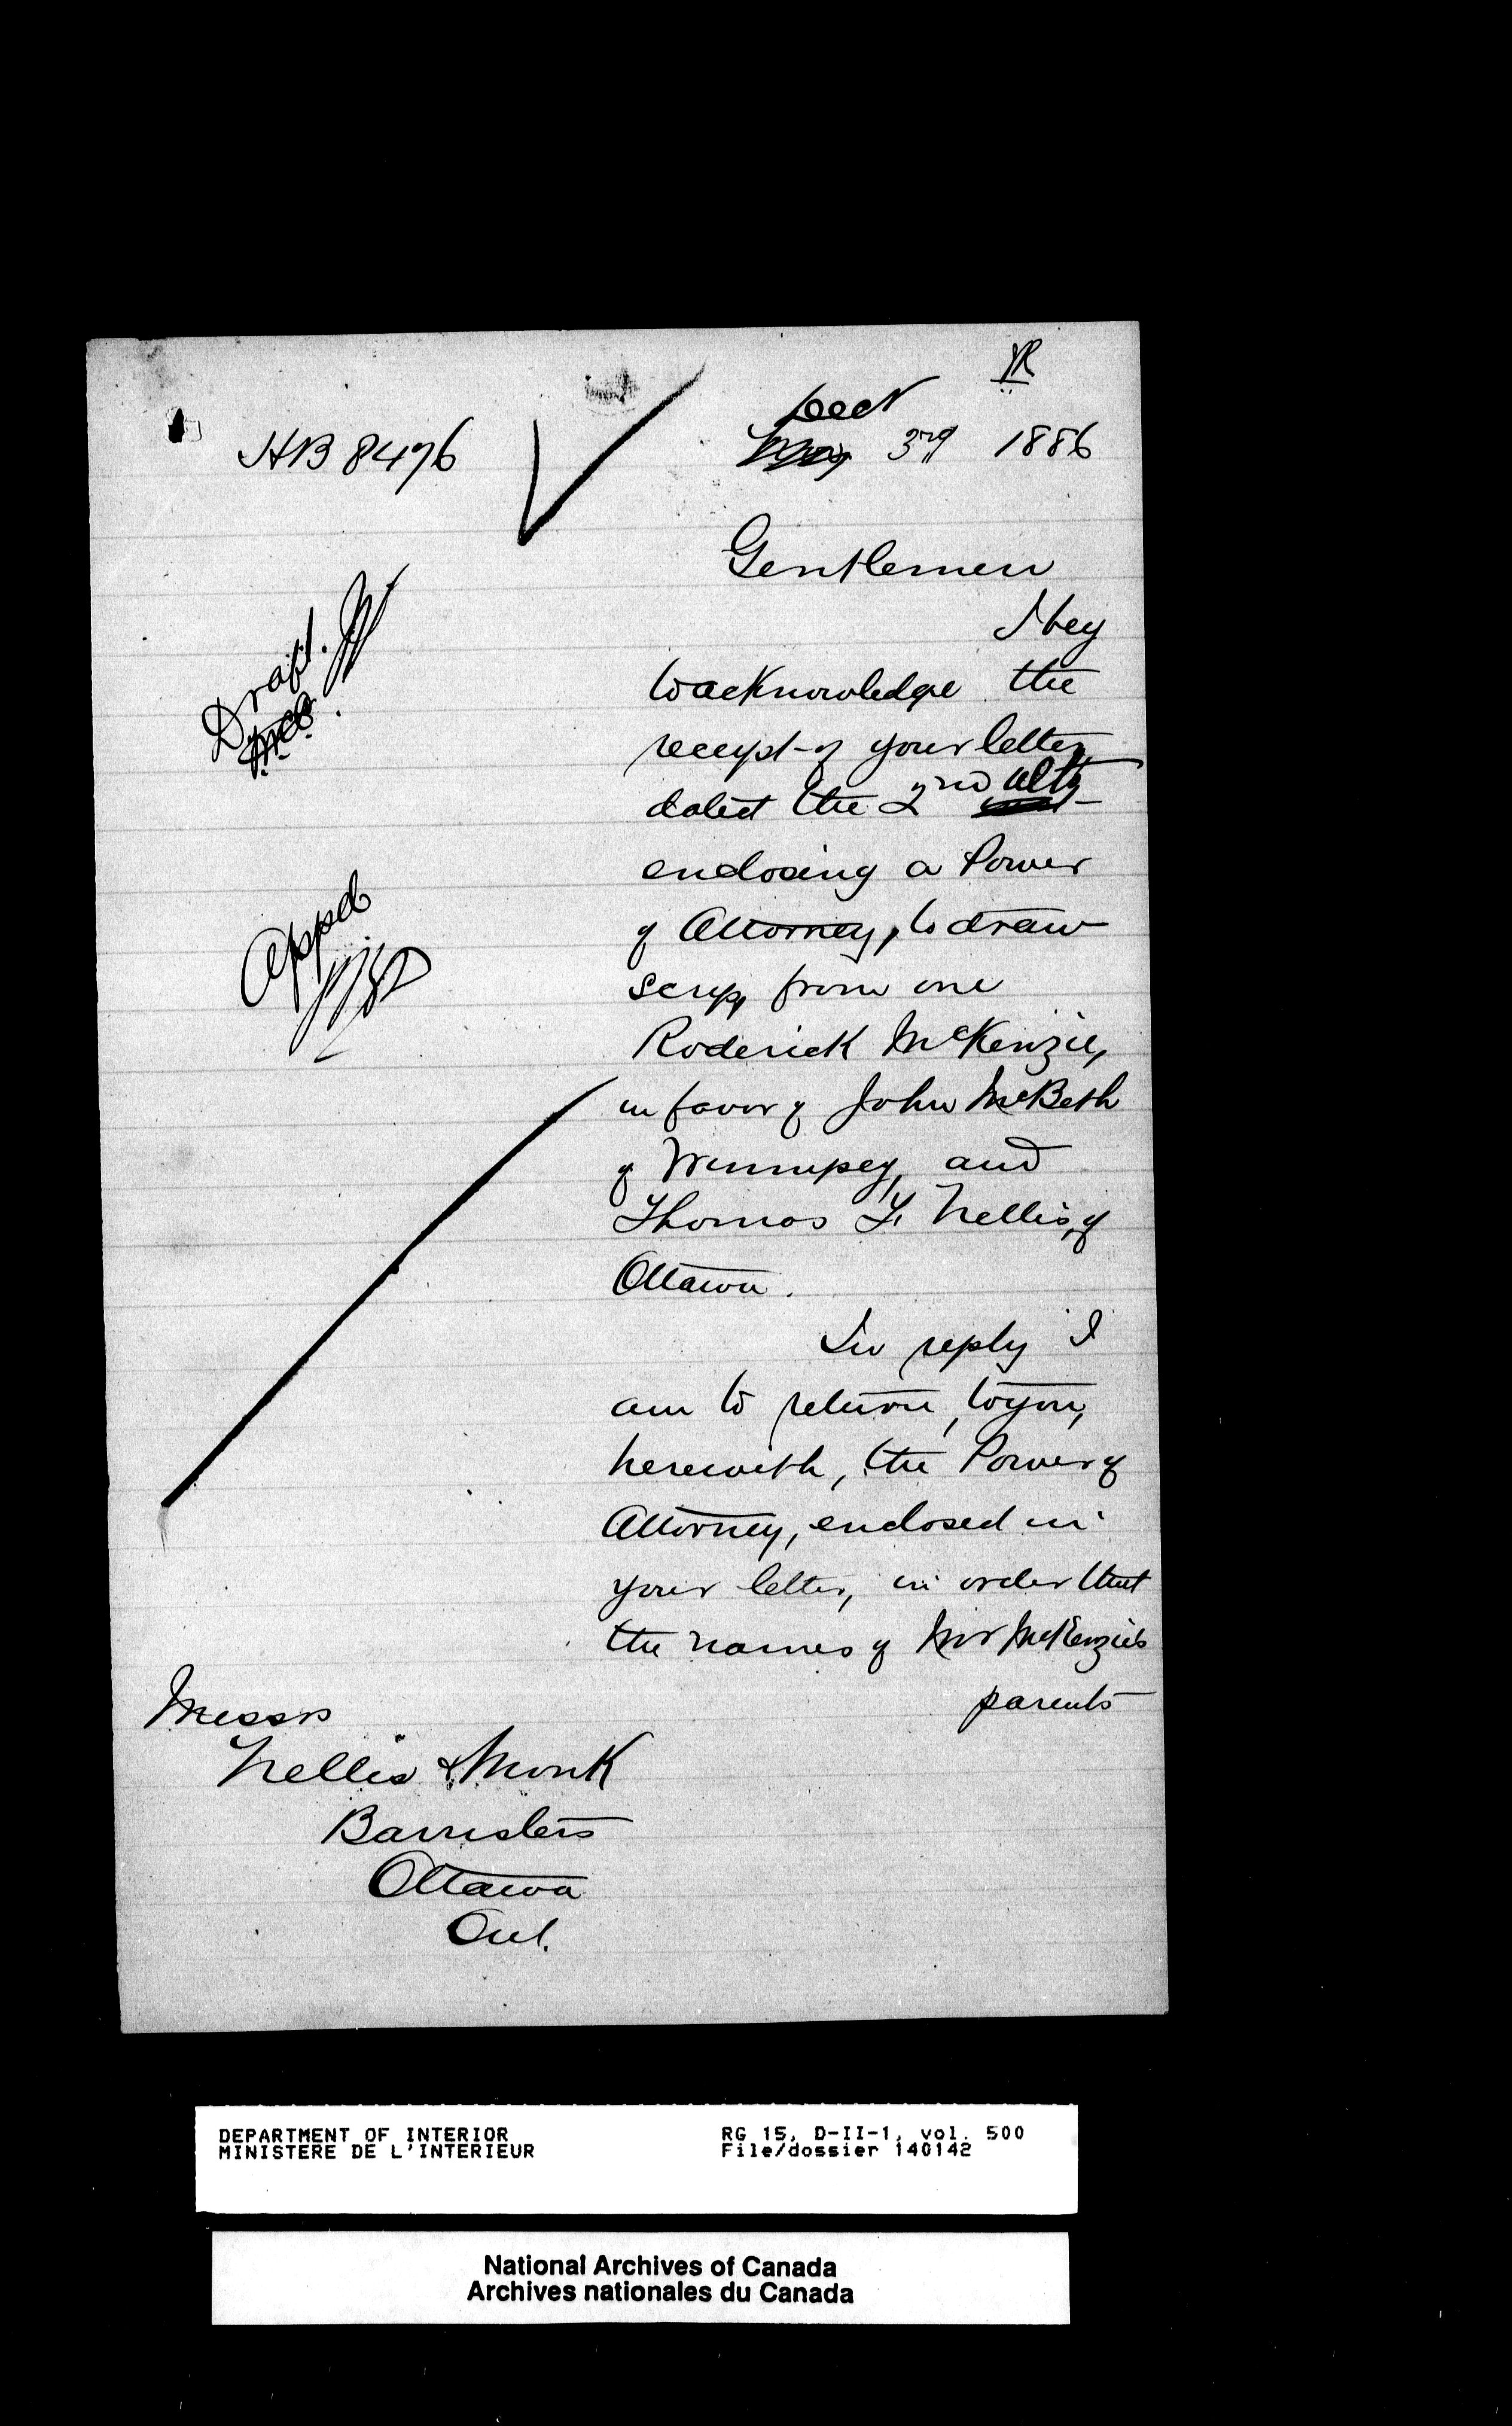 HB 8476
Decr
3rd 1886
Gentlemen
I beg
to acknowledge the
receipt of your letter,
dated the 2nd ulto
enclosing a Power
of Attorney, to draw
scrip, from one
Roderick McKenzie,
in favor of John McBeth
of Winnipeg, and
Thomas F. Nellis, of
Ottawa.
In reply I
am to return, to you,
herewith, the Power of
Attorney, enclosed in
your letter, in order that
the names of Mr McKenzie's
parents
Draft.
Appd
Messrs
Nellis & Monk
Barristers
Ottawa
Ont.
DEPARTMENT OF INTERIOR
MINISTERE DE L'INTERIEUR
RG 15, D-II-1, vol. 500
File/dossier 140142
National Archives of Canada
Archives nationales du Canada